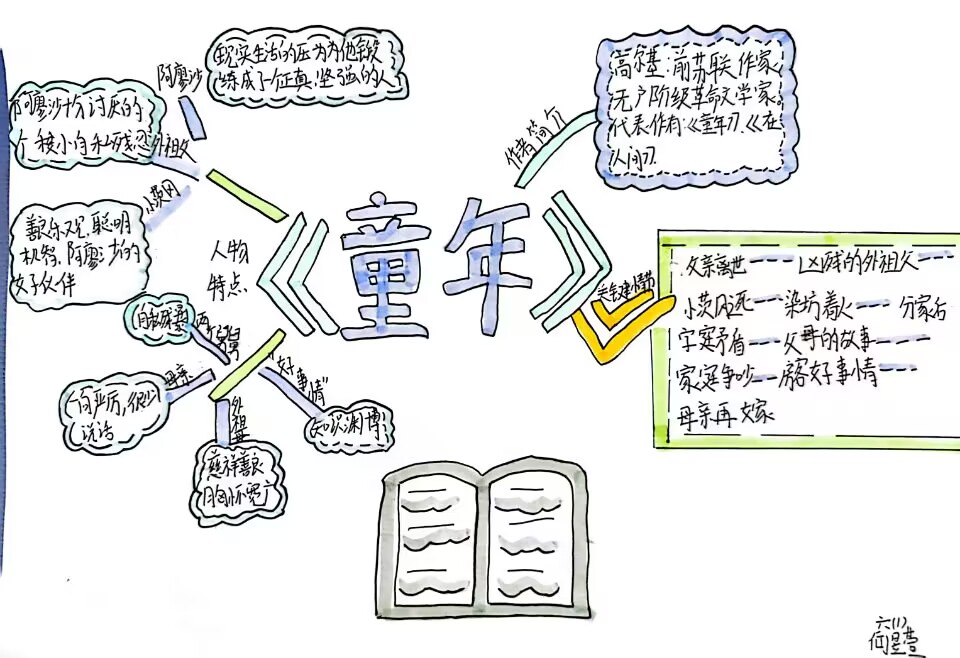 《童年》
作者简介
高尔基:前苏联作家,
无产阶级革命文学家。
代表作有:《童年》、《在
人间》.
关键情节
父亲离世——凶残的外祖父——
小茨冈死——染坊着火——分家后
字寔矛盾——父母的故事——
家寔争吵——房客好事情——
母亲再女家
人物
特点.
阿廖沙
现实生活的压力为他锻
练成了一个正真、坚强的人
外祖父
阿廖沙十分讨厌的
小茨冈
善良乐观、聪明
机智、阿廖沙的
好伙伴
两个舅舅
自私残暴
母亲
一向严厉,很少
说话
外祖母
慈祥善良
胸怀宽广
"好事情"
知识渊博
六(1)